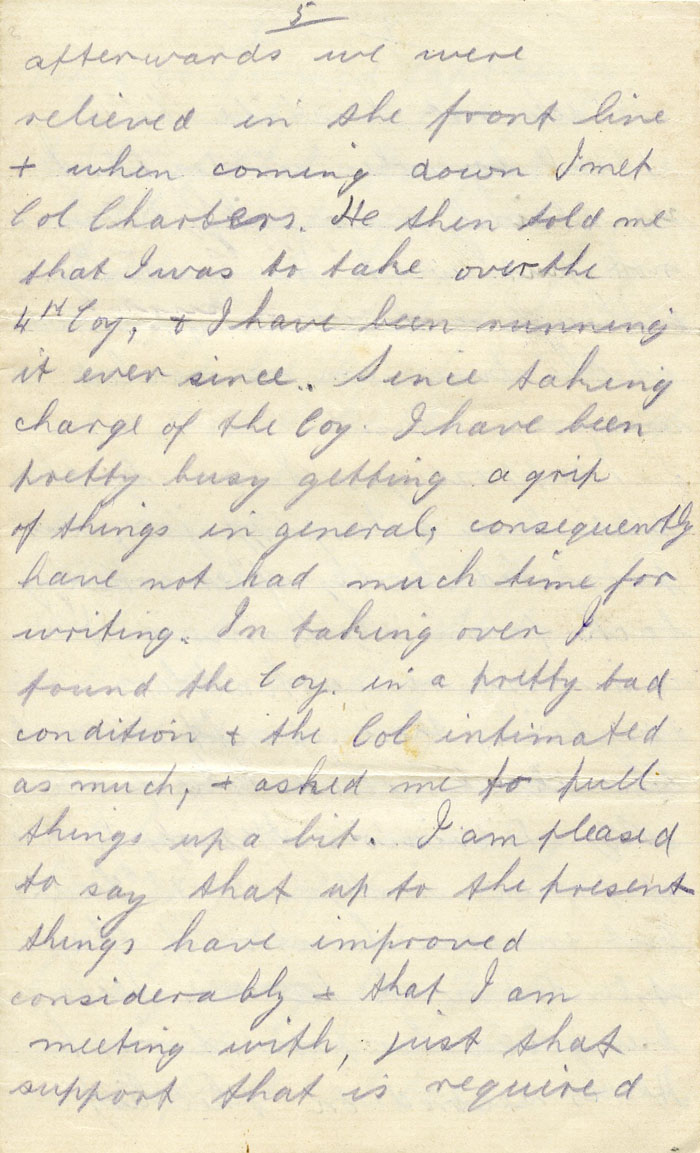 5
afterwards we were
relieved in the front line
+ when coming down I met
Col Charters. He then told me
that I was to take over the
4th Coy, + I have been running
it ever since. Since taking
charge of the Coy. I have been
pretty busy getting a grip
of things in general, consequently
have not had much time for
writing. In taking over I
found the Coy. in a pretty bad
condition + the Col intimated
as much, + asked me to pull
things up a bit. I am pleased
to say that up to the present
things have improved
considerably + that I am
meeting with, just that
support that is required